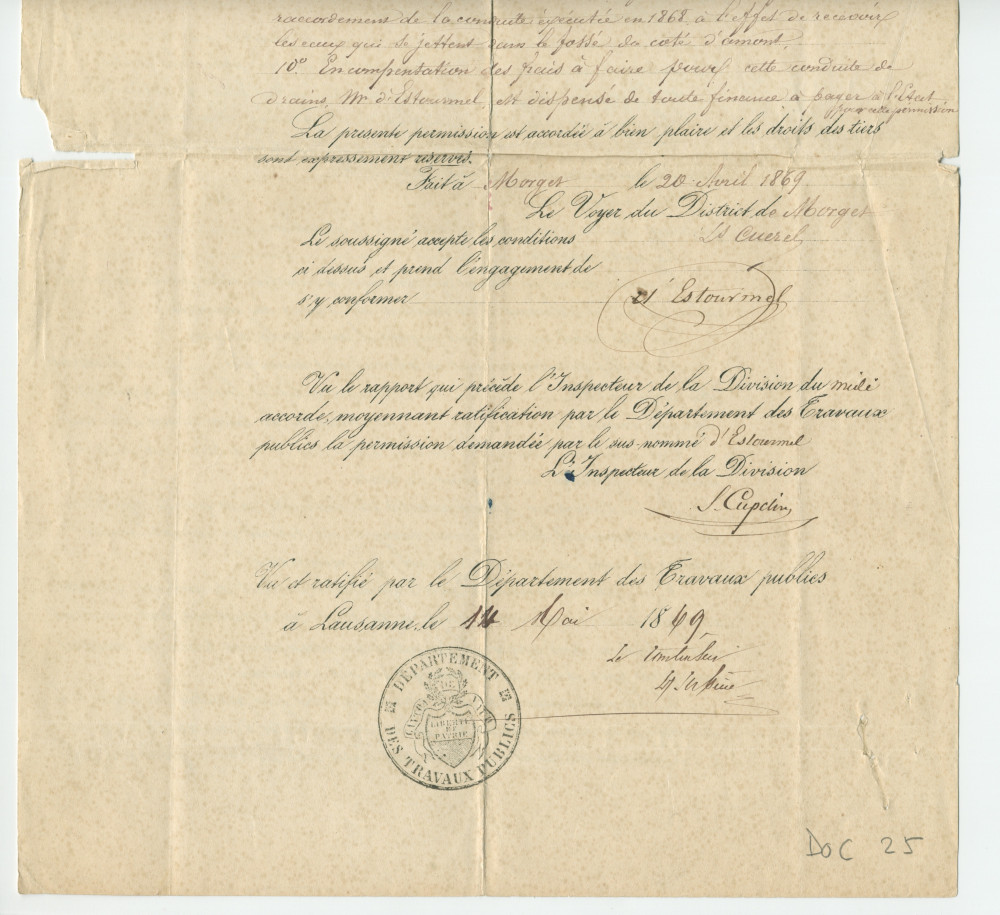 raccordement de la conduite exécutée en 1868 à l'effet de recevoir
les eaux qui se jettent dans le fossé du coté d'amont.
10° En compensation des frais à faire pour cette conduite de
drains, Mr d'Estourmel, est dispensé de toute finance à payer à l'Etat
pour cette permission
La présente permission est accordée à bien plaire et les droits des tiers
sont expressément réservés.
Fait à Morges le 20 Avril 1869
Le Voyer du District de Morges
Ls Cuerel
Le soussigné accepte les conditions
ci dessus et prend l'engagement de
s'y conformer
d'Estourmel
Vu le rapport qui précède l'Inspecteur de la Division du midi
accorde, moyennant ratification par le Département des Travaux
publics la permission demandée par le sus-nommé d'Estourmel
L'Inspecteur de la Division
Vu et ratifié par le Département des Travaux publics
à Lausanne, le 14 Mai 1869
Le
DÉPARTEMENT
DES TRAVAUX PUBLICS
CANTON DE VAUD
LIBERTÉ
ET
PATRIE
DOC 25